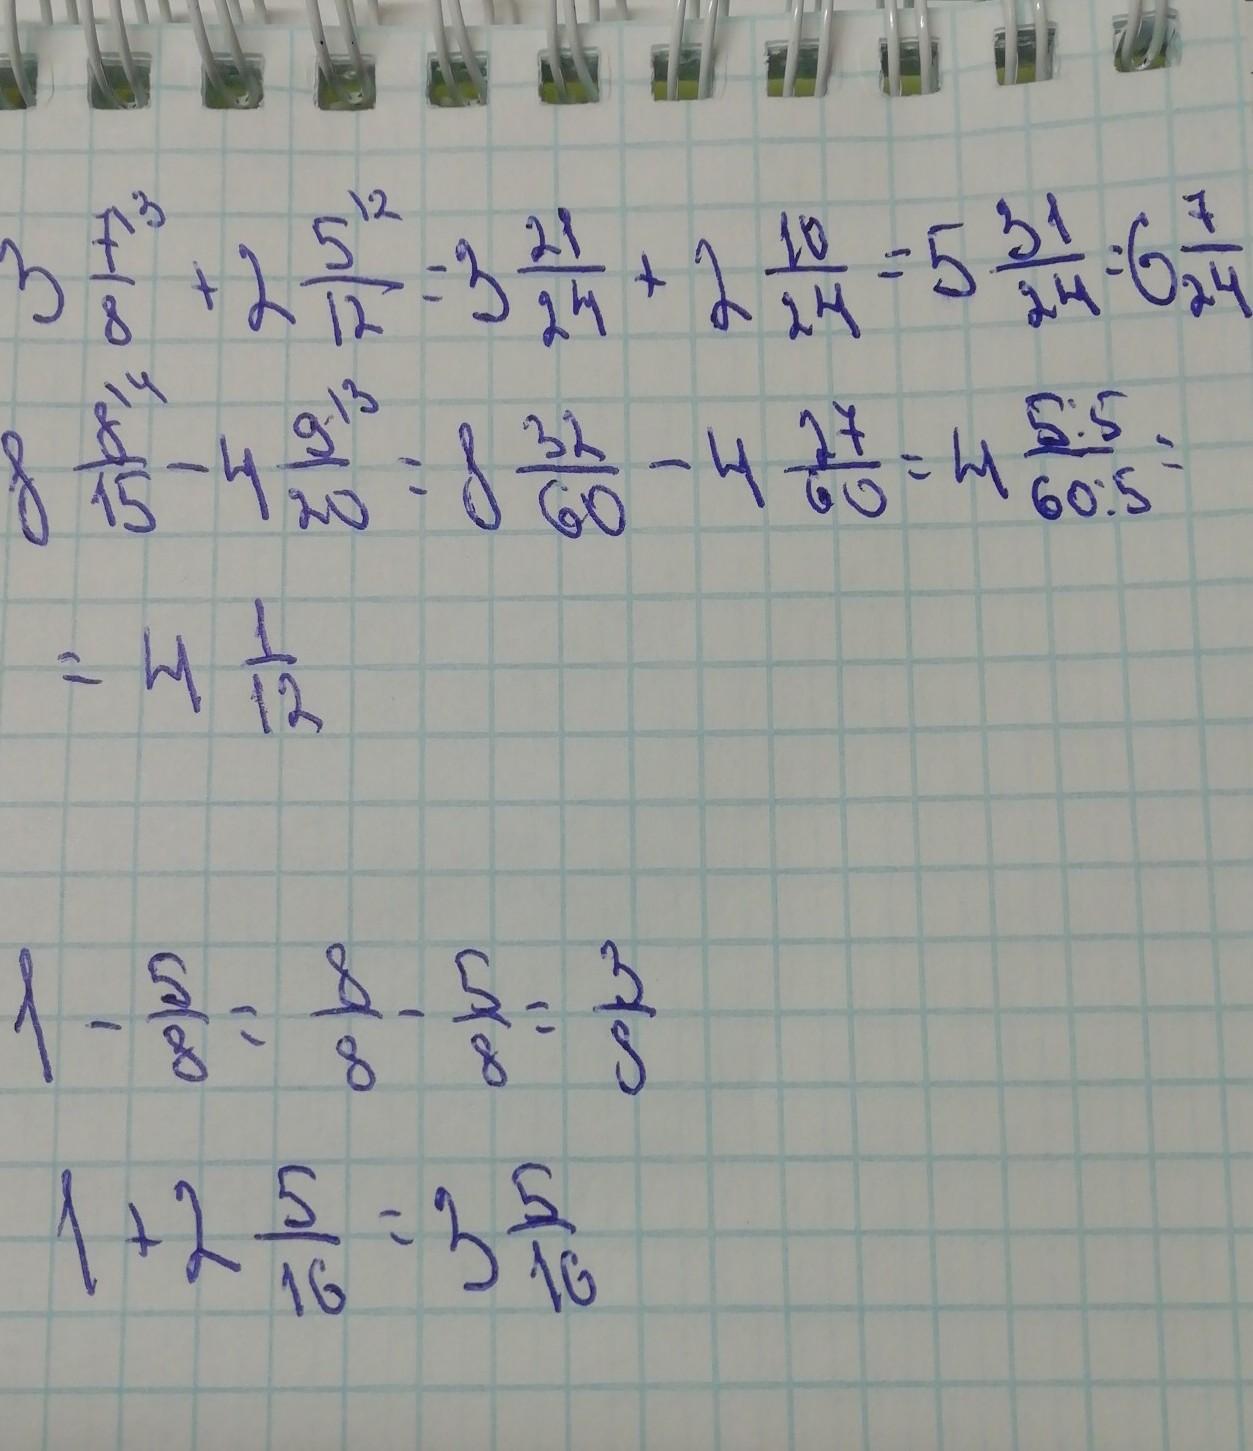 3 7^{\3}/8 + 2 5^{\2}/12 = 3 21/24 + 2 10/24 = 5 31/24 = 6 7/24
8 8^{\4}/15 - 4 9^{\3}/20 = 8 32/60 - 4 27/60 = 4 5:5/60:5 =
= 4 1/12
1 - 5/8 = 8/8 - 5/8 = 3/8
1 + 2 5/16 = 3 5/16